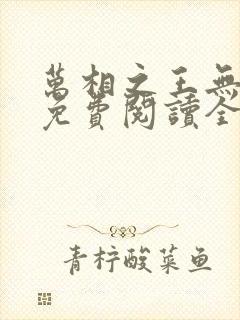 萬相之王無
免費閱讀全
青柠酸菜鱼